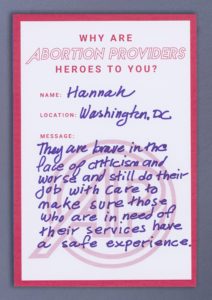 WHY ARE
ABORTION PROVIDERS
HEROES TO YOU?
NAME: Hannah
LOCATION: Washington, DC
MESSAGE:
They are brave in the
face of criticism and
worse and still do their
job with care to
make sure those
who are in need of
their services have
a safe experience.